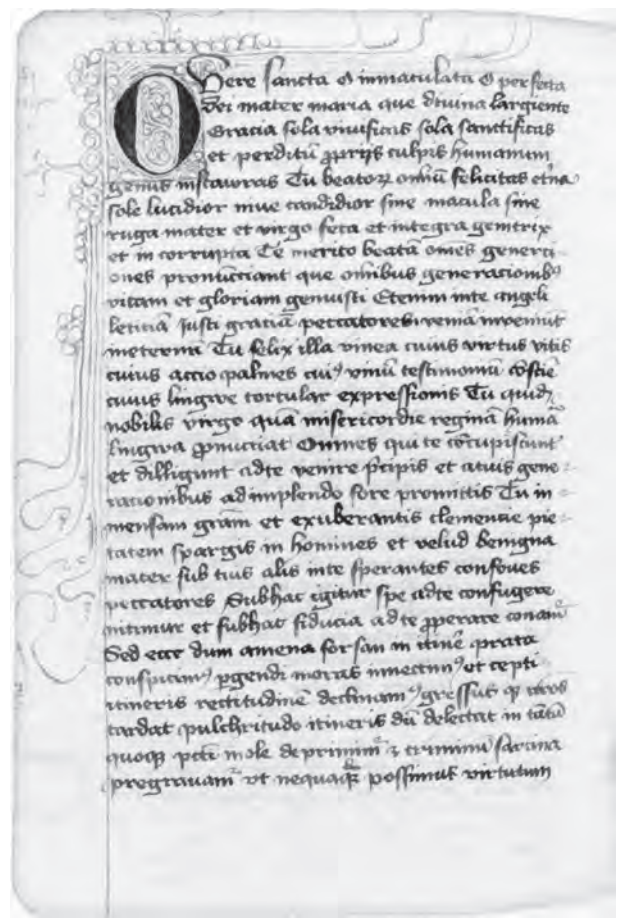 O Vere sancta O inmaculata O perfecta
dei mater maria que divina largiente
Gracia sola vivificas sola sanctificas
et perditū ꝓprijs culpis humanum
genus instauras Tu beatoꝝ omniū felicitas etn̄a
sole lucidior nive candidior sine macula sine
ruga mater et virgo feta et integra genitrix
et in corrupta Te merito beatā om̄es generaci-
ones pronūcciant que omnibus generacionibꝰ
vitam et gloriam genuisti Etenim inte angeli
leticiā Justi graciā peccatores veniā invenīut
ineternū Tu felix illa vinea cuius virtus vitis
cuius accio palmes cuiꝰ vinū testimoniū cōsciē
cuius lingwe tortular expressionis Tu quidē
nobilis virgo quā misericordie reginā humā
lingwa ꝓnūcciat Omnes qui te cōcupiscunt
et dilligunt adte venire p̄cipis et atuis gene-
racionibus adimplendo fore promittis Tu in-
mensam grām et exuberantis clemencie pie-
tatem spargis in homines et velud benigna
mater sub tuis alis inte sperantes confoves
peccatores Subhac igitur spe adte confugere
nitimur et subhac fiducia adte ꝓperare conamᷣ
Sed ecce dum amena forsan in itinē prata
conspicimꝰ ꝑgendi moras innectimꝰ et cepti
itineris rectitudinē declinamꝰ gressus qꝫ
tardat pulchritudo itineris dū delectat in tātū
quoqꝫ pccī mole deprimimᷣ ⁊ criminū sarcina
pregravamᷣ ut nequaqꝫ possimus virtutum